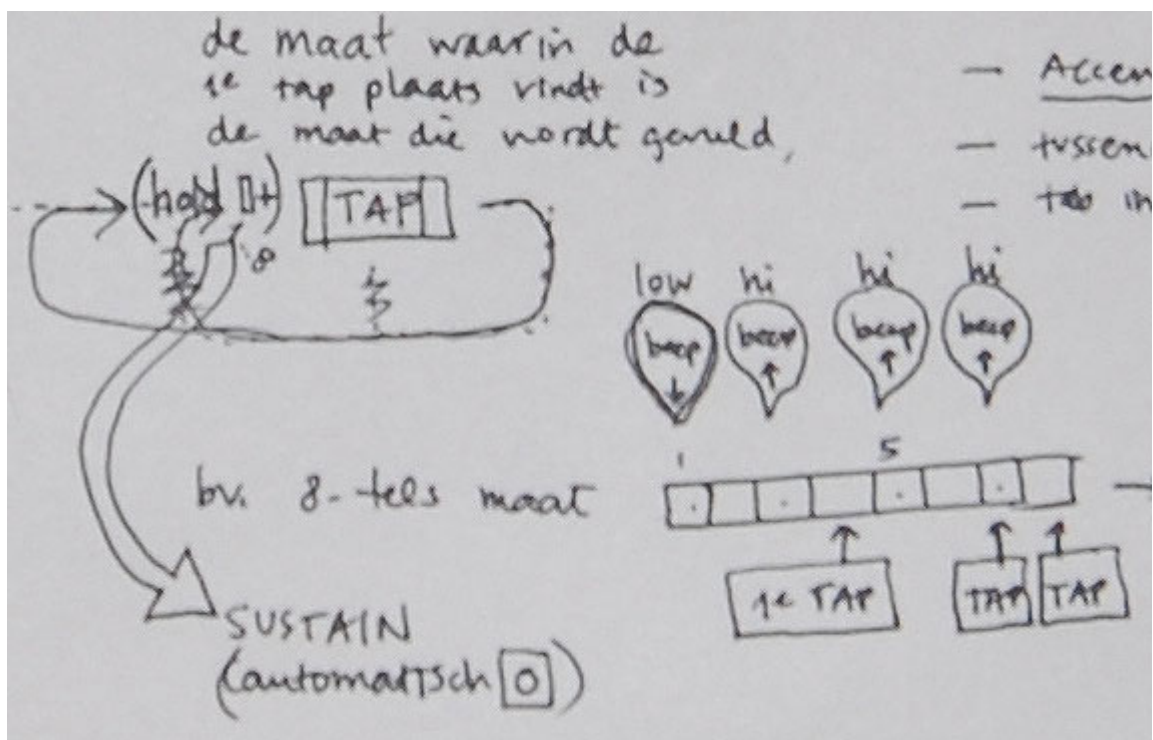 de maat waarin de
1e tap plaats vindt is
de maat die wordt gevuld,
(hold +)
TAP
8
— Accen
— tussen
— in
low hi hi hi
beep beep beep beep
1 5
bv. 8-tels maat
1e TAP TAP TAP
SUSTAIN
(automatisch O)